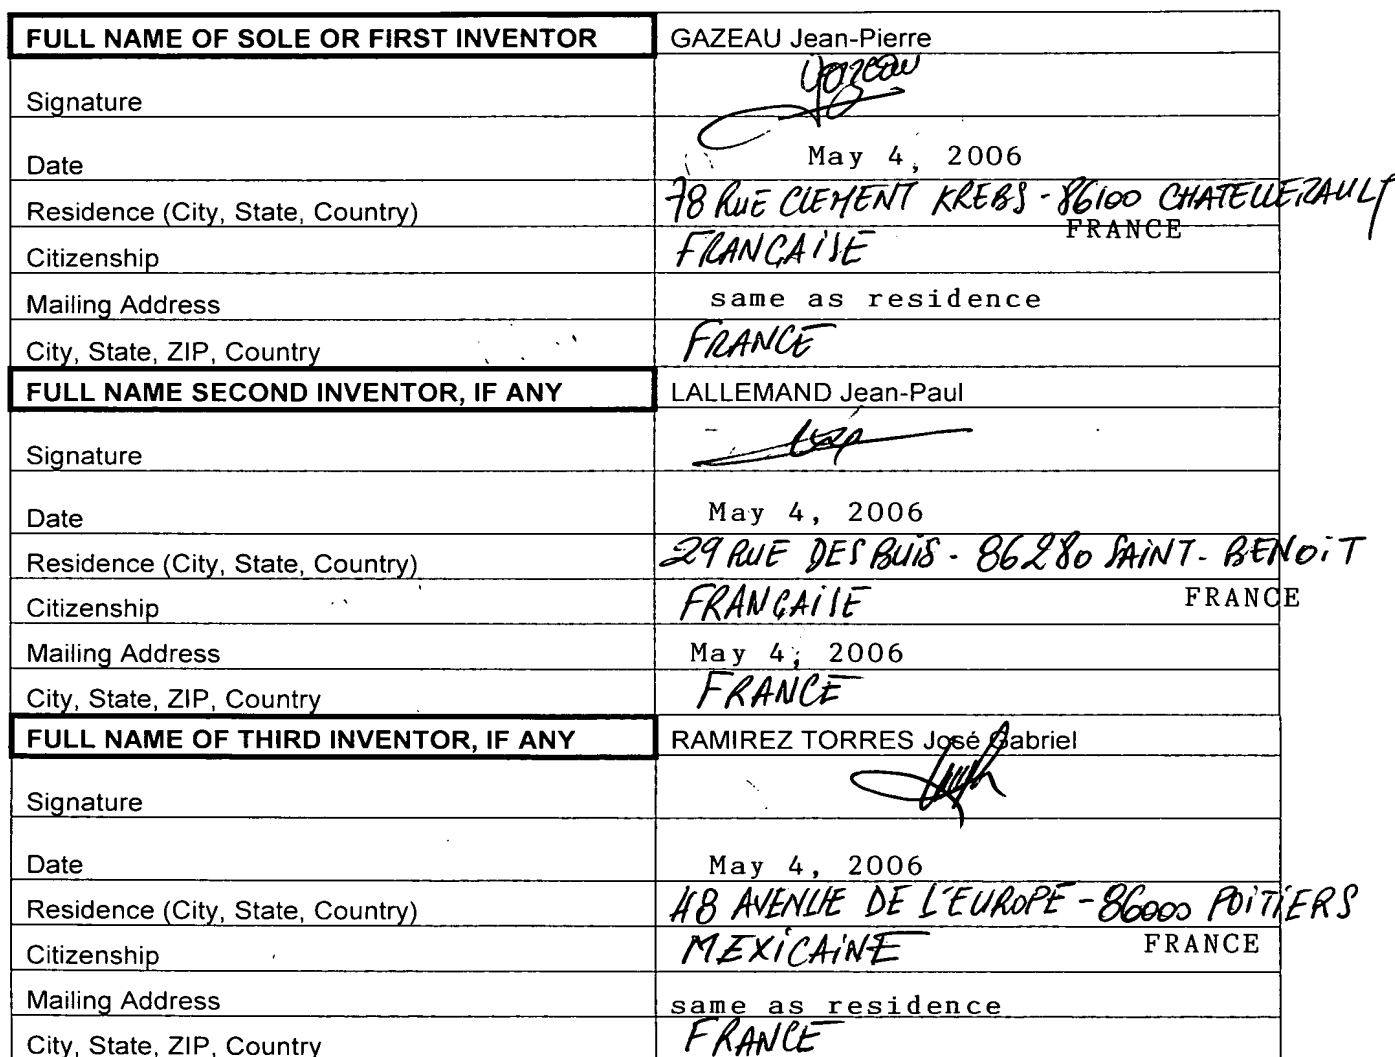 FULL NAME OF SOLE OR FIRST INVENTOR GAZEAU Jean-Pierre
Signature
Date May 4, 2006
Residence (City, State, Country) 78 RUE CLEMENT KREBS - 86100 CHATELLERAULT
FRANCE
Citizenship FRANÇAISE
Mailing Address same as residence
City, State, ZIP, Country FRANCE
FULL NAME SECOND INVENTOR, IF ANY LALLEMAND Jean-Paul
Signature
Date May 4, 2006
Residence (City, State, Country) 29 RUE DES BUIS - 86280 SAINT-BENOIT
Citizenship FRANÇAISE FRANCE
Mailing Address May 4, 2006
City, State, ZIP, Country FRANCE
FULL NAME OF THIRD INVENTOR, IF ANY RAMIREZ TORRES José Gabriel
Signature
Date May 4, 2006
Residence (City, State, Country) 48 AVENUE DE L'EUROPE - 86000 POITIERS
Citizenship MEXICAINE FRANCE
Mailing Address same as residence
City, State, ZIP, Country FRANCE